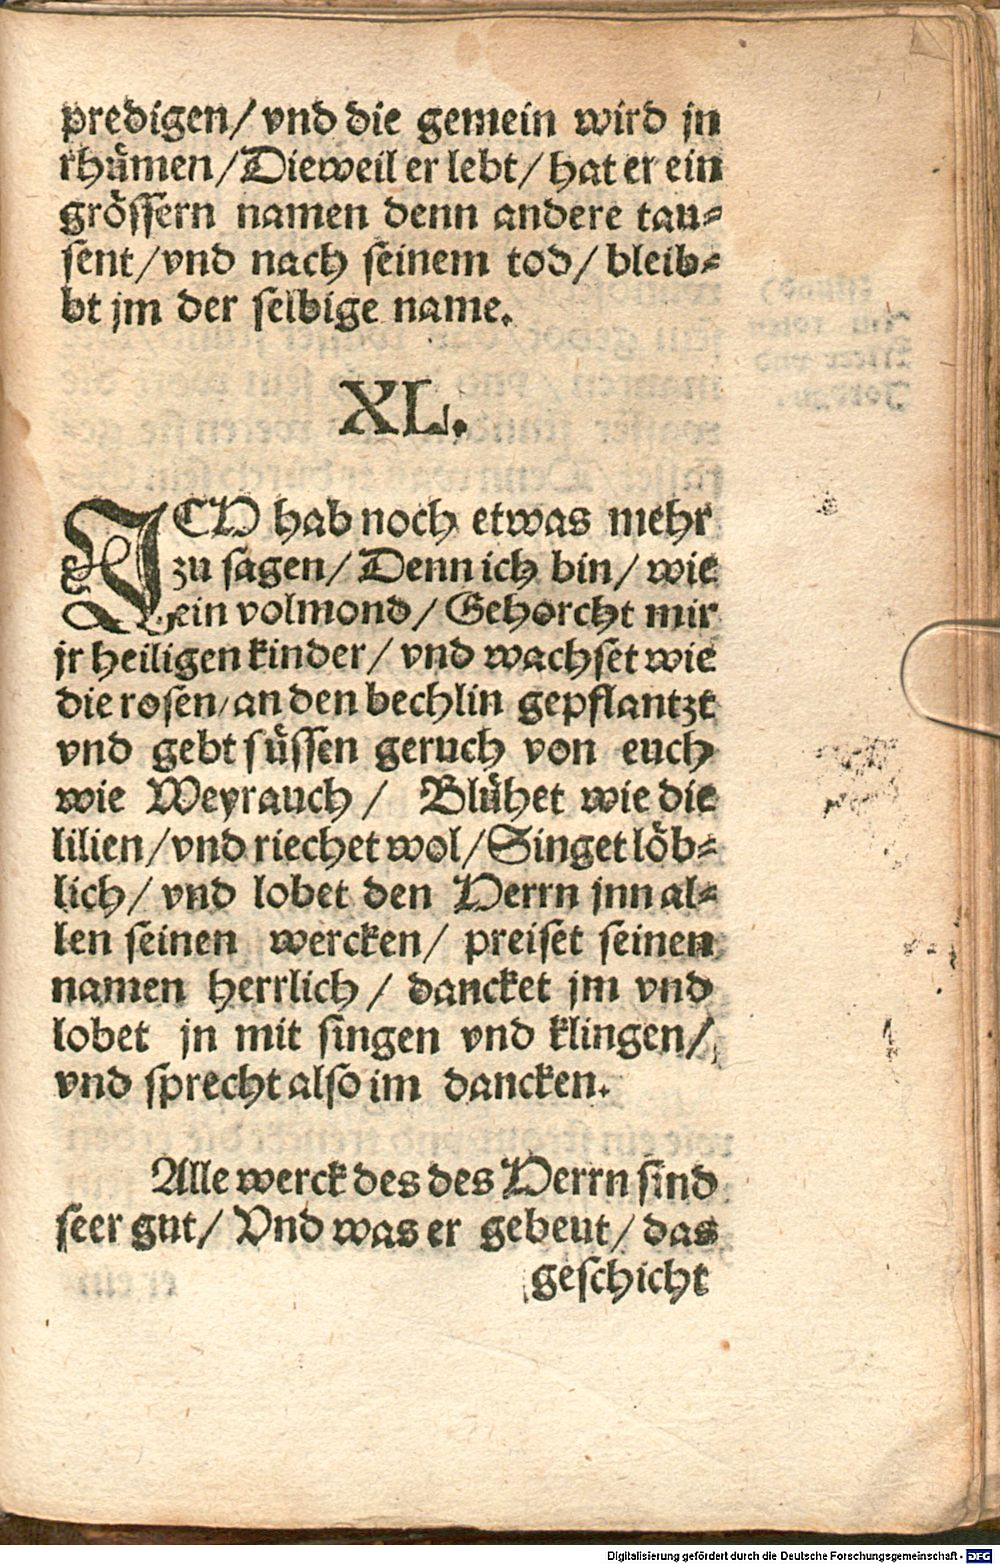 predigen/ vnd die gemein wird jn
rhümen/ Dieweil er lebt/ hat er ein
grössern namen denn andere tau-
sent/ vnd nach seinem tod/ bleib-
bt jm der selbige name.
XL.
ICH hab noch etwas mehr
zu sagen/ Denn ich bin/ wie
ein volmond/ Gehorcht mir
jr heiligen kinder/ vnd wachset wie
die rosen/ an den bechlin gepflantzt
vnd gebt süssen geruch von euch
wie Weyrauch/ Blühet wie die
lilien/ vnd riechet wol/ Singet löb-
lich/ vnd lobet den Herrn jnn al-
len seinen wercken/ preiset seinen
namen herrlich/ dancket jm vnd
lobet jn mit singen vnd klingen/
vnd sprecht also im dancken.
Alle werck des des Herrn sind
seer gut/ Vnd was er gebeut/ das
geschicht
Digitalisierung gefördert durch die Deutsche Forschungsgemeinschaft - DFG